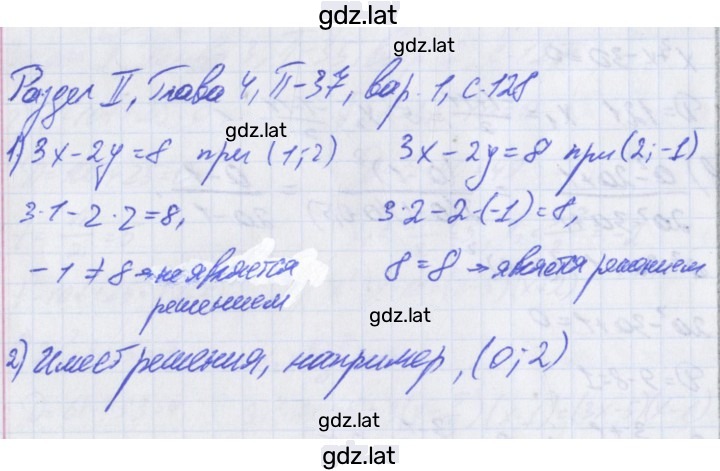 gdz.lat
gdz.lat
Раздел II, Глава 4, П-37, вар. 1, с.128
gdz.lat
1) 3x-2y=8 при (1;2) 3x-2y=8 при (2;-1)
3·1-2·2=8, 3·2-2·(-1)=8,
-1≠8 → не является решением 8=8 → является решением
gdz.lat
2) Имеет решения, например, (0;2)
gdz.lat
gdz.lat